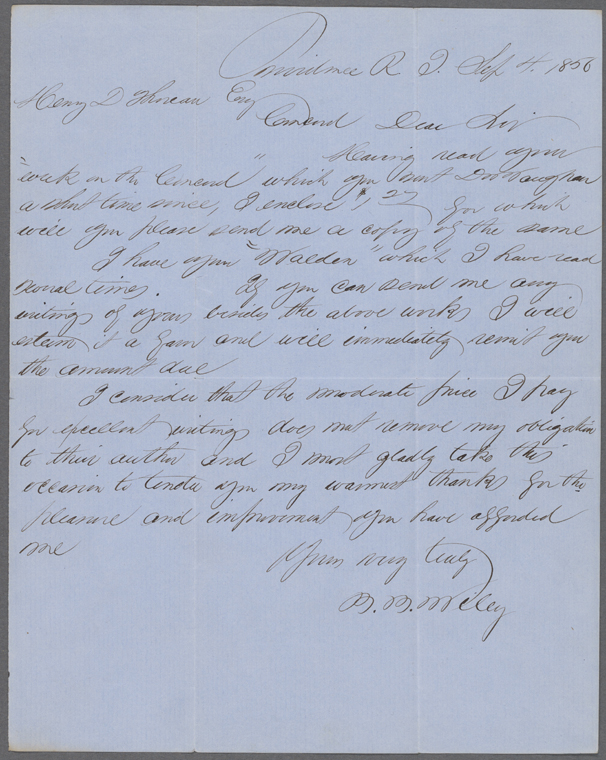 Providence R I. Sep 4. 1856
Henry D Thoreau Esq
Concord Dear Sir
Having read your
"week on the Concord" which you sent Dr
a short time since, I enclose $1.27 for which
will you please send me a copy of the same
I have your "Walden" which I have read
several times. If you can send me any
writings of yours besides the above works I will
esteem it a favor and will immediately remit you
the amount due
I consider that the moderate price I pay
for excellent writings does not remove my obligation
to their author and I most gladly take this
occasion to tender you my warmest thanks for the
pleasure and improvement you have afforded
me
Yours very truly
B. B. Wiley